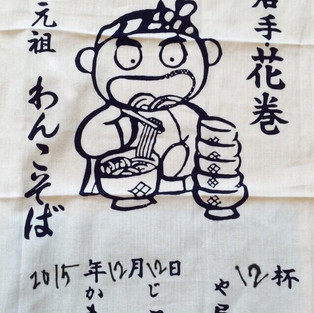 岩手・花巻
元祖 わんこそば
12杯
2015年12月12日